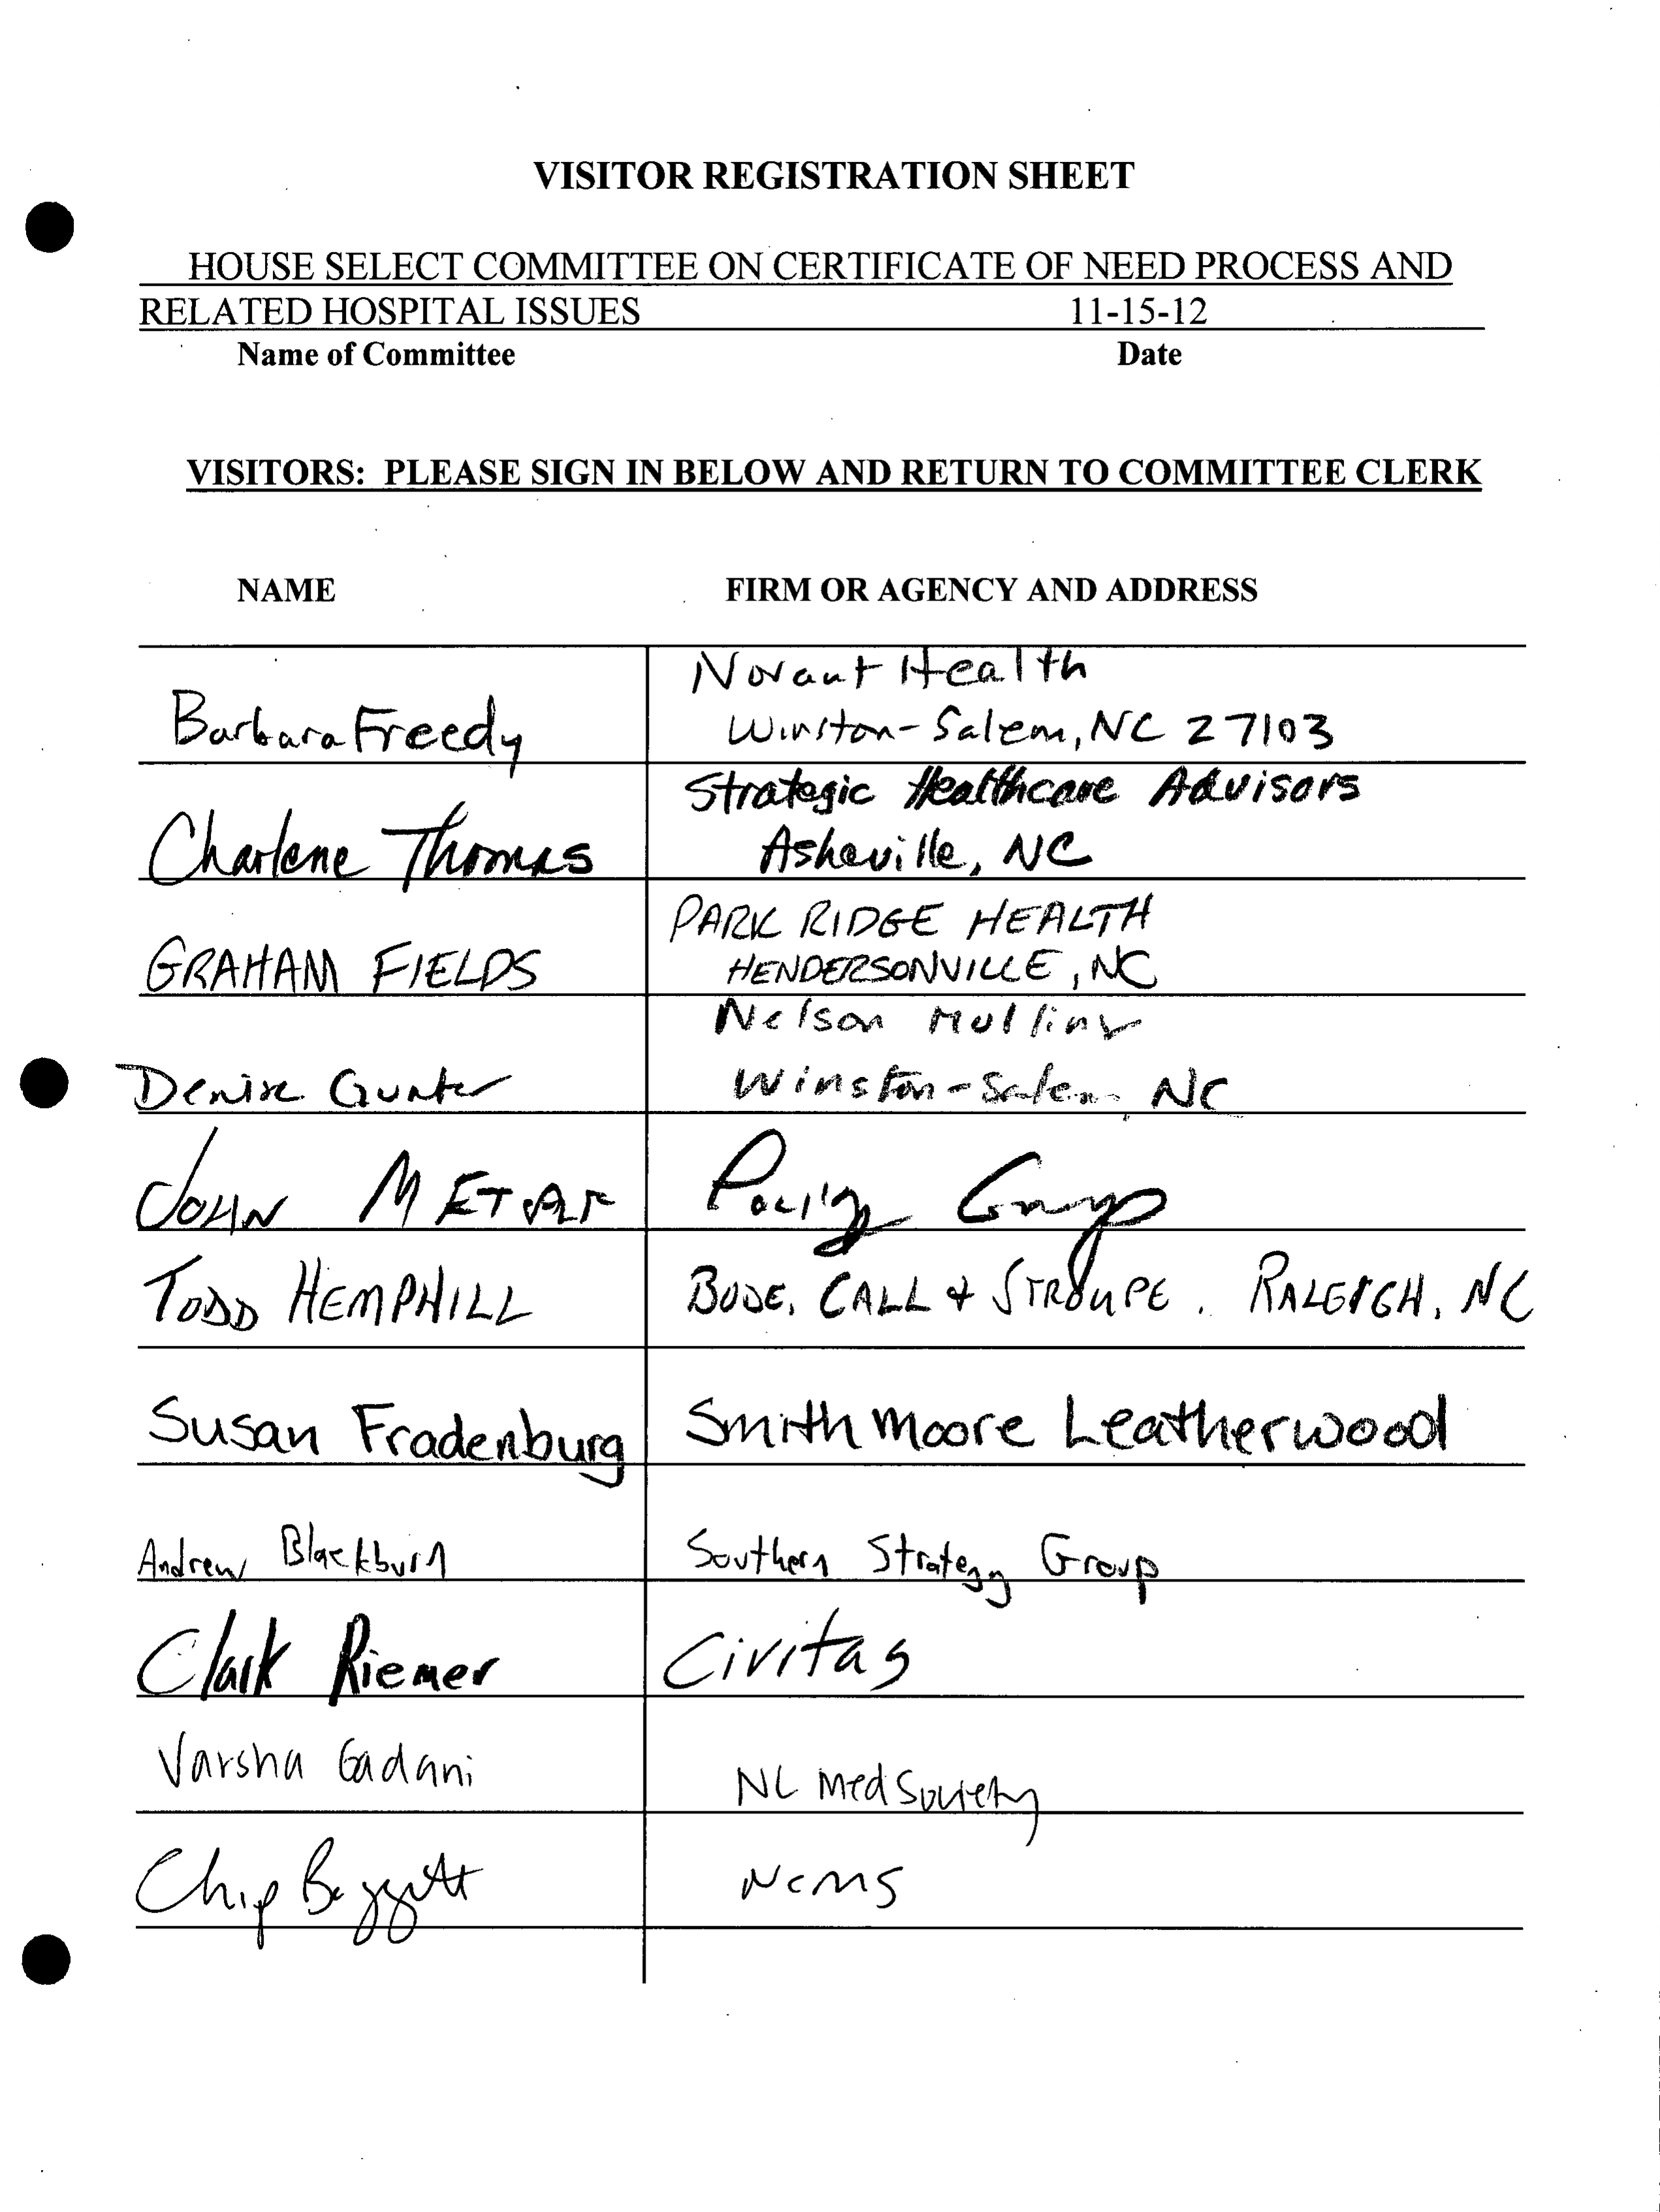 VISITOR REGISTRATION SHEET
HOUSE SELECT COMMITTEE ON CERTIFICATE OF NEED PROCESS AND
RELATED HOSPITAL ISSUES 11-15-12
Name of Committee Date
VISITORS: PLEASE SIGN IN BELOW AND RETURN TO COMMITTEE CLERK
NAME FIRM OR AGENCY AND ADDRESS
Novant Health
Barbara Freedy Winston-Salem, NC 27103
Strategic Healthcare Advisors
Charlene Thomas Asheville, NC
PARK RIDGE HEALTH
GRAHAM FIELDS HENDERSONVILLE, NC
Nelson Mullins
Denise Gunter Winston-Salem, NC
JOHN Policy Group
TODD HEMPHILL BODE, CALL & STROUPE, RALEIGH, NC
Susan Fradenburg Smith Moore Leatherwood
Andrew Blackburn Southern Strategy Group
Clark Riemer Civitas
Varsha Gadani NC Med Society
Chip Baggett NCMS